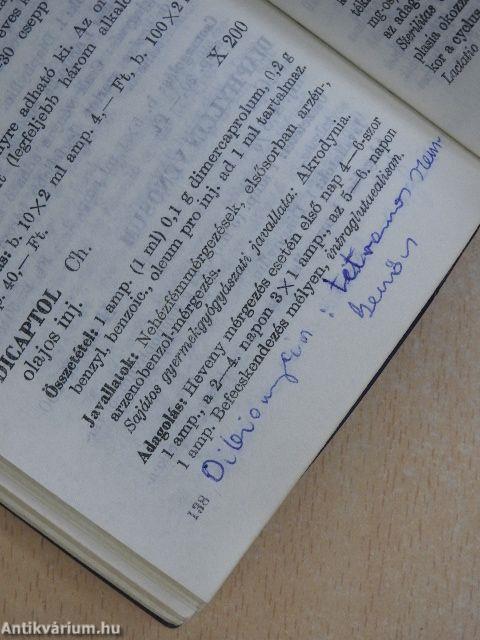 eves
-30 csepp
nyre adható ki. Az or
t (legfeljebb három alkalo
s: b. 10×2 ml amp. 4,— Ft, b. 100×2
p. 40,— Ft.
X 200
DICAPTOL Ch.
olajos inj.
Összetétel: 1 amp. (1 ml) 0,1 g dimercaprolum, 0,2 g
benzyl, benzoic., oleum pro inj. ad 1 ml tartalmaz.
Javallatok: Nehézfémmérgezések, elsősorban arzén-,
arzenobenzol-mérgezés.
Sajátos gyermekgyógyászati javallata: Akrodynia.
Adagolás: Heveny mérgezés esetén első nap 4—6-szor
1 amp., a 2—4. napon 3×1 amp., az 5—6. napon
1 amp. Befecskendezés mélyen, intraglutaealisom.
138
mg-os
az adag
Sterilitas
plasia okozz
kor a cyclus
Lactatio
Antikvárium.hu